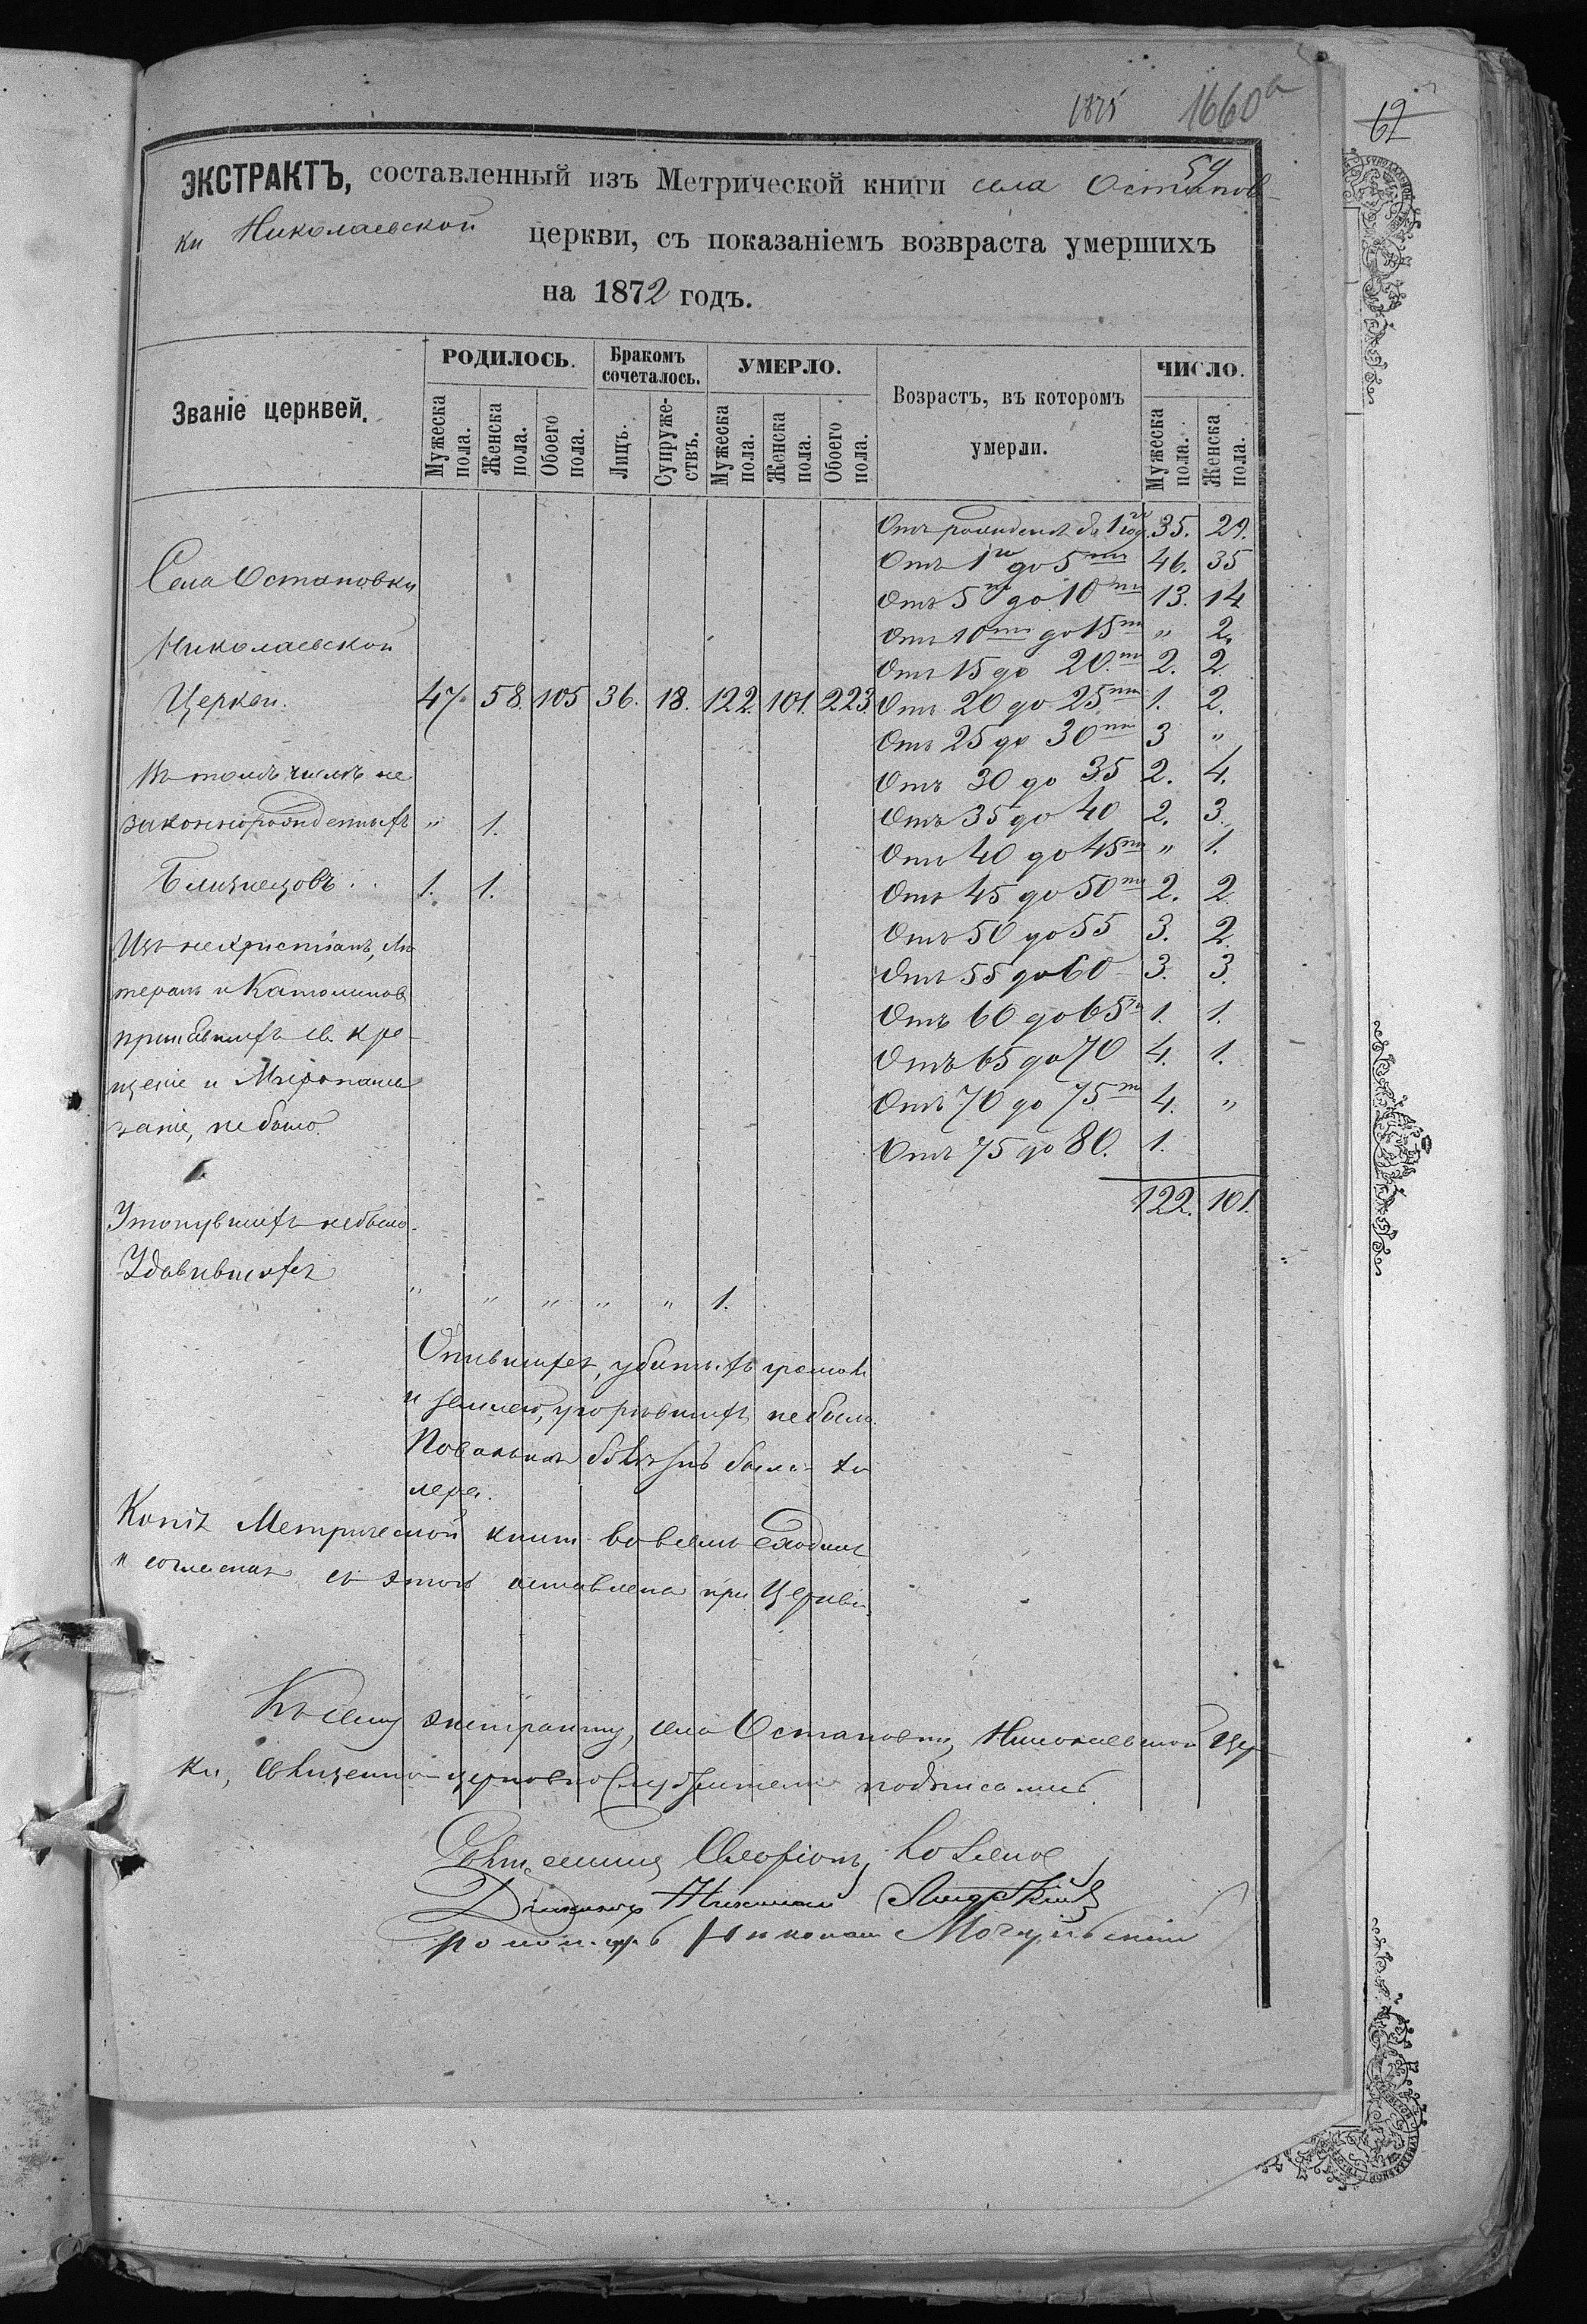 1875 1660а
62
59
ЭКСТРАКТЪ, составленный изъ Метрической книги села Остапов-
ки Николаевской церкви, съ показаніемъ возвраста умершихъ
на 1872 годъ.
Званіе церквей.
РОДИЛОСЬ.
Мужеска пола.
Женска пола.
Обоего пола.
Бракомъ сочеталось.
Лицъ.
Супруже-ствъ.
УМЕРЛО.
Мужеска пола.
Женска пола.
Обоего пола.
Возрастъ, въ которомъ
умерли.
ЧИСЛО.
Мужеска пола.
Женска пола.
Отъ рожденія до 1го год. 35. 29.
Отъ 1го до 5ти 46. 35
Села Остаповки
Отъ 5ти до 10ти 13. 14
Николаевской
Отъ 10ти до 15ти " 2.
Отъ 15 до 20ти 2. 2
Церкви. 47. 58. 105 36. 18. 122. 101. 223. Отъ 20 до 25ти 1. 2.
Отъ 25 до 30ти 3 "
Въ томъ числѣ не
Отъ 30 до 35 2. 4.
законнорожденныхъ " 1.
Отъ 35 до 40 2. 3.
Отъ 40 до 45ти " 1.
Близнецовъ . . 1. 1.
Отъ 45 до 50ти 2. 2
Изъ нехристіанъ, лю
Отъ 50 до 55 3. 2
теранъ и Католиковъ
Отъ 55 до 60 3. 3.
принявшихъ св. кре-
Отъ 60 до 65ти 1. 1.
щеніе и Миропома
Отъ 65 до 70 4. 1.
заніе, не было.
Отъ 70 до 75ти 4. "
Отъ 75 до 80. 1.
122. 101.
Утонувшихъ не было.
Удавившихся
" " " " " 1.
Опившихся, убитыхъ громомъ
и землею, угорѣвшихъ не было.
Повальная болѣзнь была хо
лера.
Копія Метрической книги во всемъ сходная
и согласная съ этою оставлена при Церкви.
Къ сему экстракту, села Остаповки, Николаевской Цер-
кви, священно-церковнослужители подписались.
Священникъ
Діаконъ Николай
Пономарь Николай